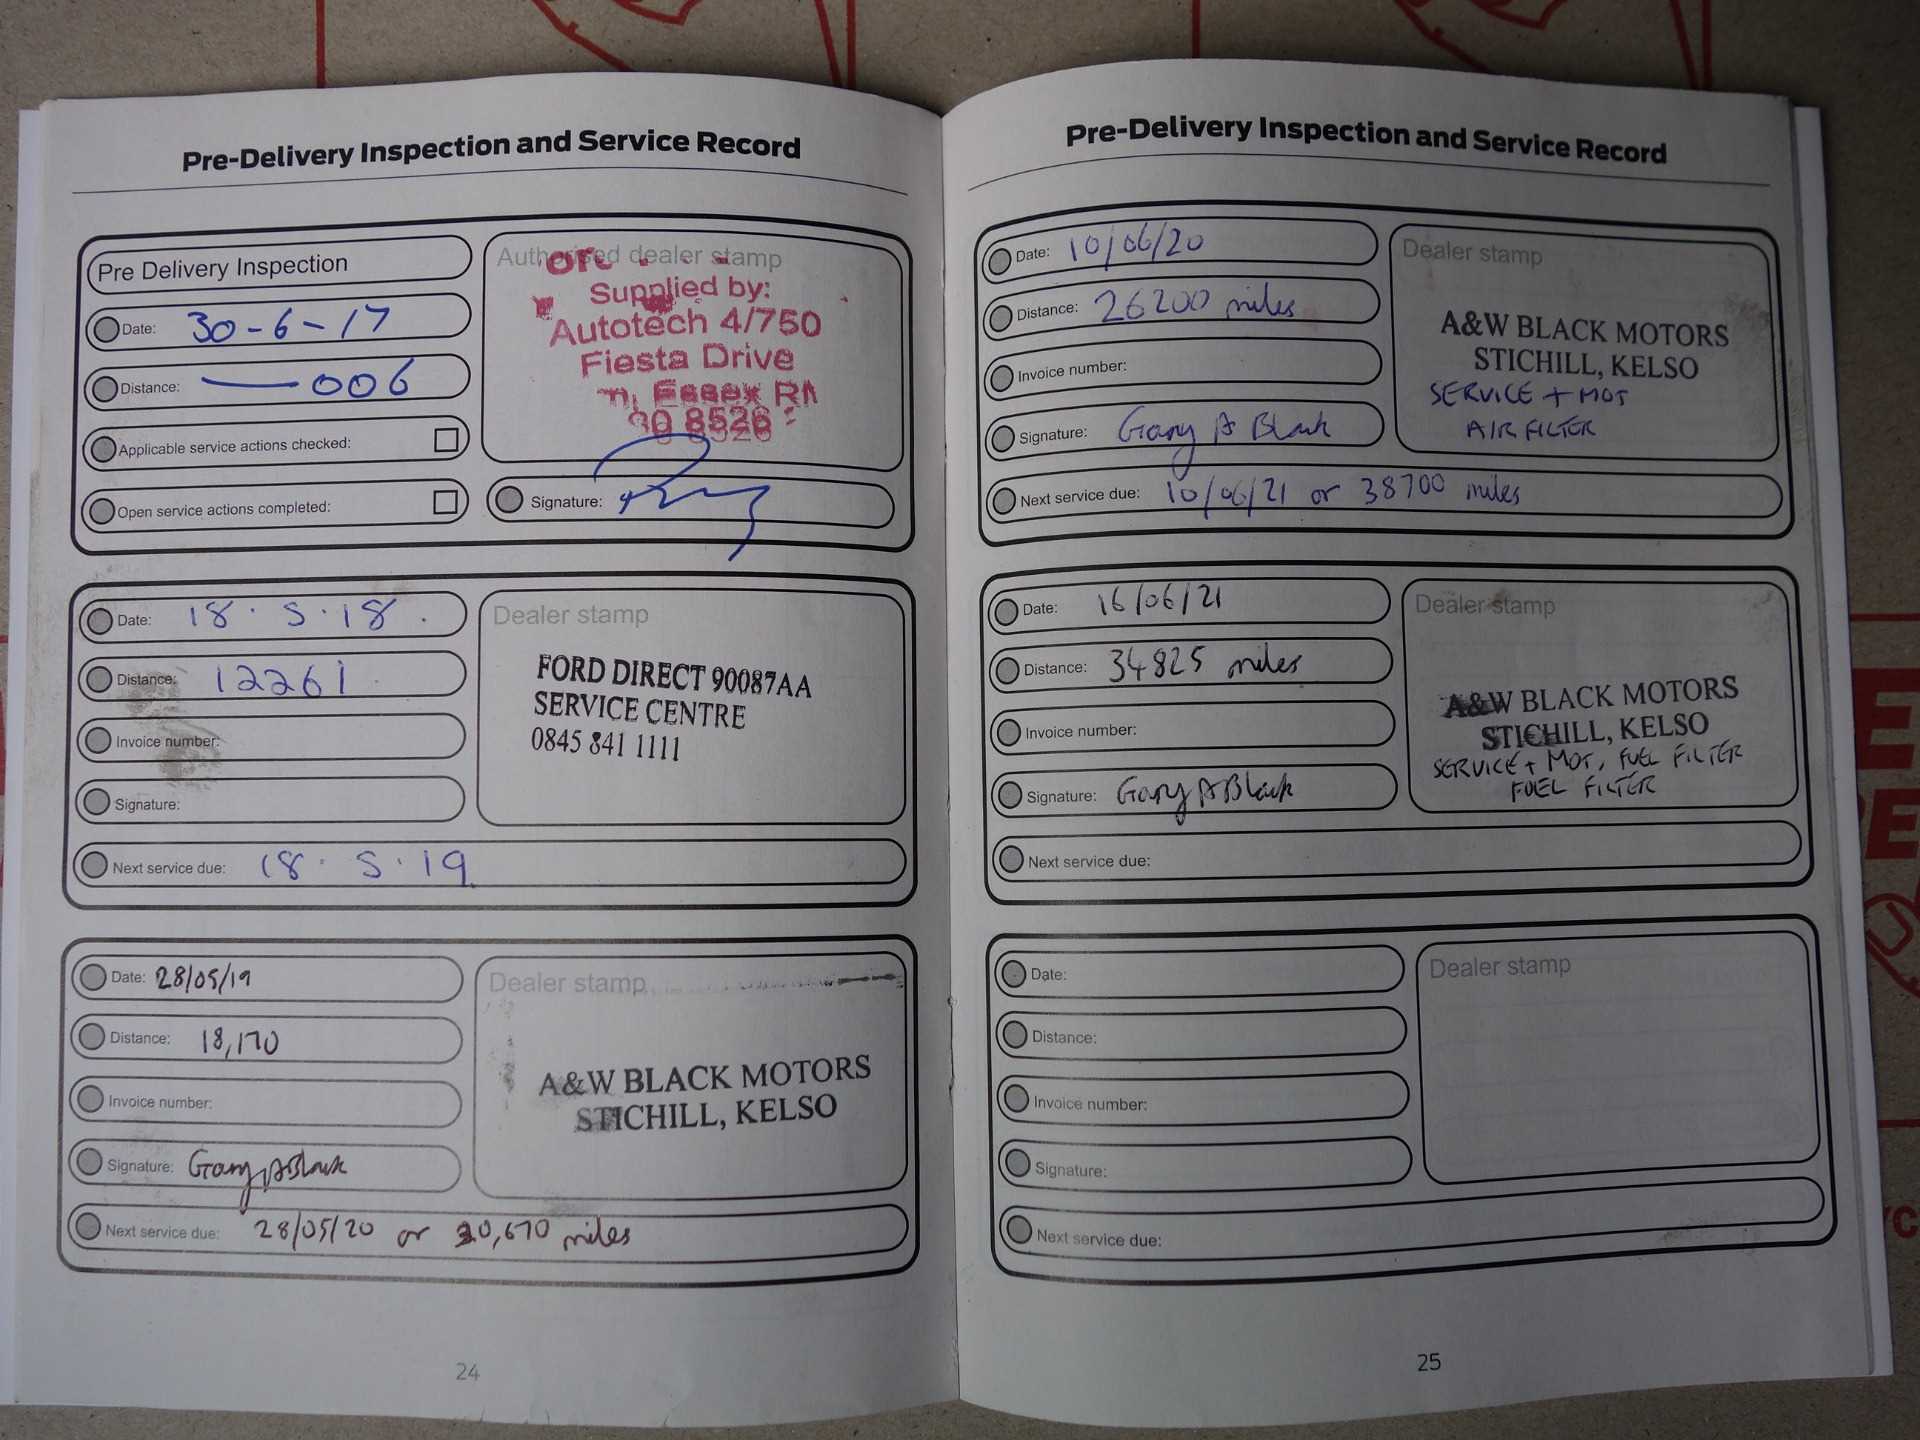 Pre-Delivery Inspection and Service Record
Pre Delivery Inspection
Date: 30-6-17
Distance: —006
Applicable service actions checked:
Open service actions completed:
Authorised dealer stamp
Supplied by:
Autotech 4/750
Fiesta Drive
Essex RM
0 8526
Signature:
Date: 18.5.18.
Distance: 12261
Invoice number:
Signature:
Next service due: 18.5.19.
Dealer stamp
FORD DIRECT 90087AA
SERVICE CENTRE
0845 841 1111
Date: 28/05/19
Distance: 18,170
Invoice number:
Signature: Gary A Black
Next service due: 28/05/20 or 30,670 miles
Dealer stamp
A&W BLACK MOTORS
STICHILL, KELSO
24
Pre-Delivery Inspection and Service Record
Date: 10/06/20
Distance: 26200 miles
Invoice number:
Signature: Gary A Black
Next service due: 10/06/21 or 38700 miles
Dealer stamp
A&W BLACK MOTORS
STICHILL, KELSO
SERVICE + MOT
AIR FILTER
Date: 16/06/21
Distance: 34825 miles
Invoice number:
Signature: Gary A Black
Next service due:
Dealer stamp
A&W BLACK MOTORS
STICHILL, KELSO
SERVICE + MOT, FUEL FILTER
FUEL FILTER
Date:
Distance:
Invoice number:
Signature:
Next service due:
Dealer stamp
25